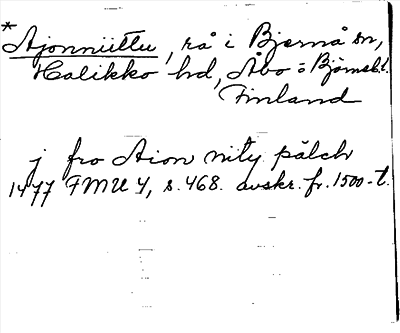 *
Ajonniittu, rå i Bjernå sn,
Halikko hd, Åbo o Björneb. l.
Finland
j fro Aion nity pälch
1477 FMU 4, s. 468. avskr. fr. 1500-t.